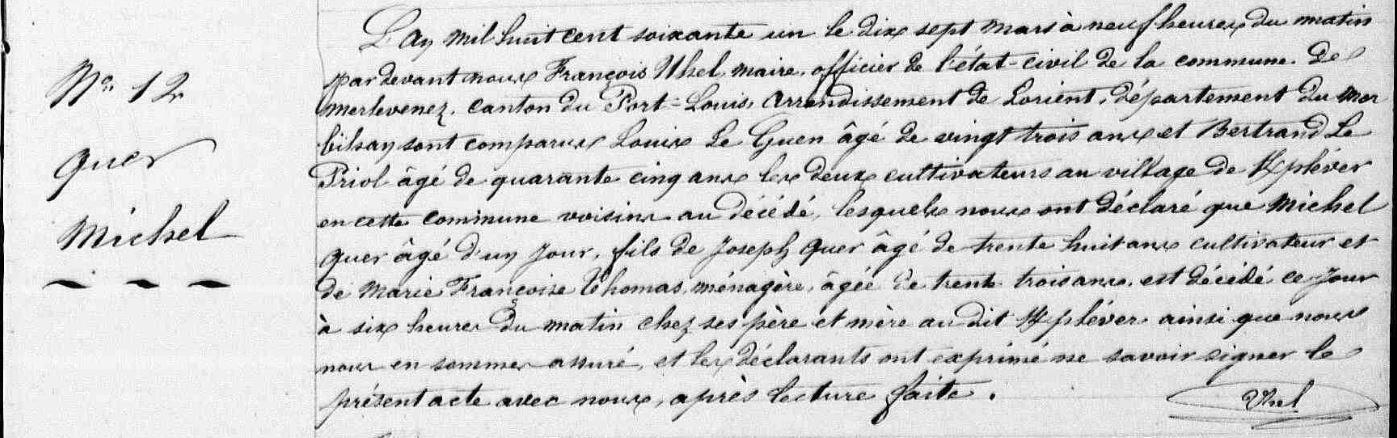 No. 12
quer
Michel
L'an mil huit cent soixante un le dix sept mars à neuf heures du matin
par devant nous François Uhel, maire, officier de l'état-civil de la commune de
merlevenez, canton du Port-Louis, arrondissement de Lorient, département du mor
bihan sont comparus Louis Le Guen âgé de vingt trois ans et Bertrand Le
Priol âgé de quarante cinq ans les deux cultivateurs au village de Kpléver
en cette commune voisins au décédé, lesquels nous ont déclaré que Michel
quer âgé d'un jour, fils de Joseph quer âgé de trente huit ans cultivateur et
de Marie Françoise Thomas, ménagère, âgée de trente trois ans, est décédé ce jour
à six heures du matin chez ses père et mère au dit Kpléver ainsi que nous
nous en sommes assuré, et les déclarants ont exprimé ne savoir signer le
présent acte avec nous, après lecture faite.
Uhel